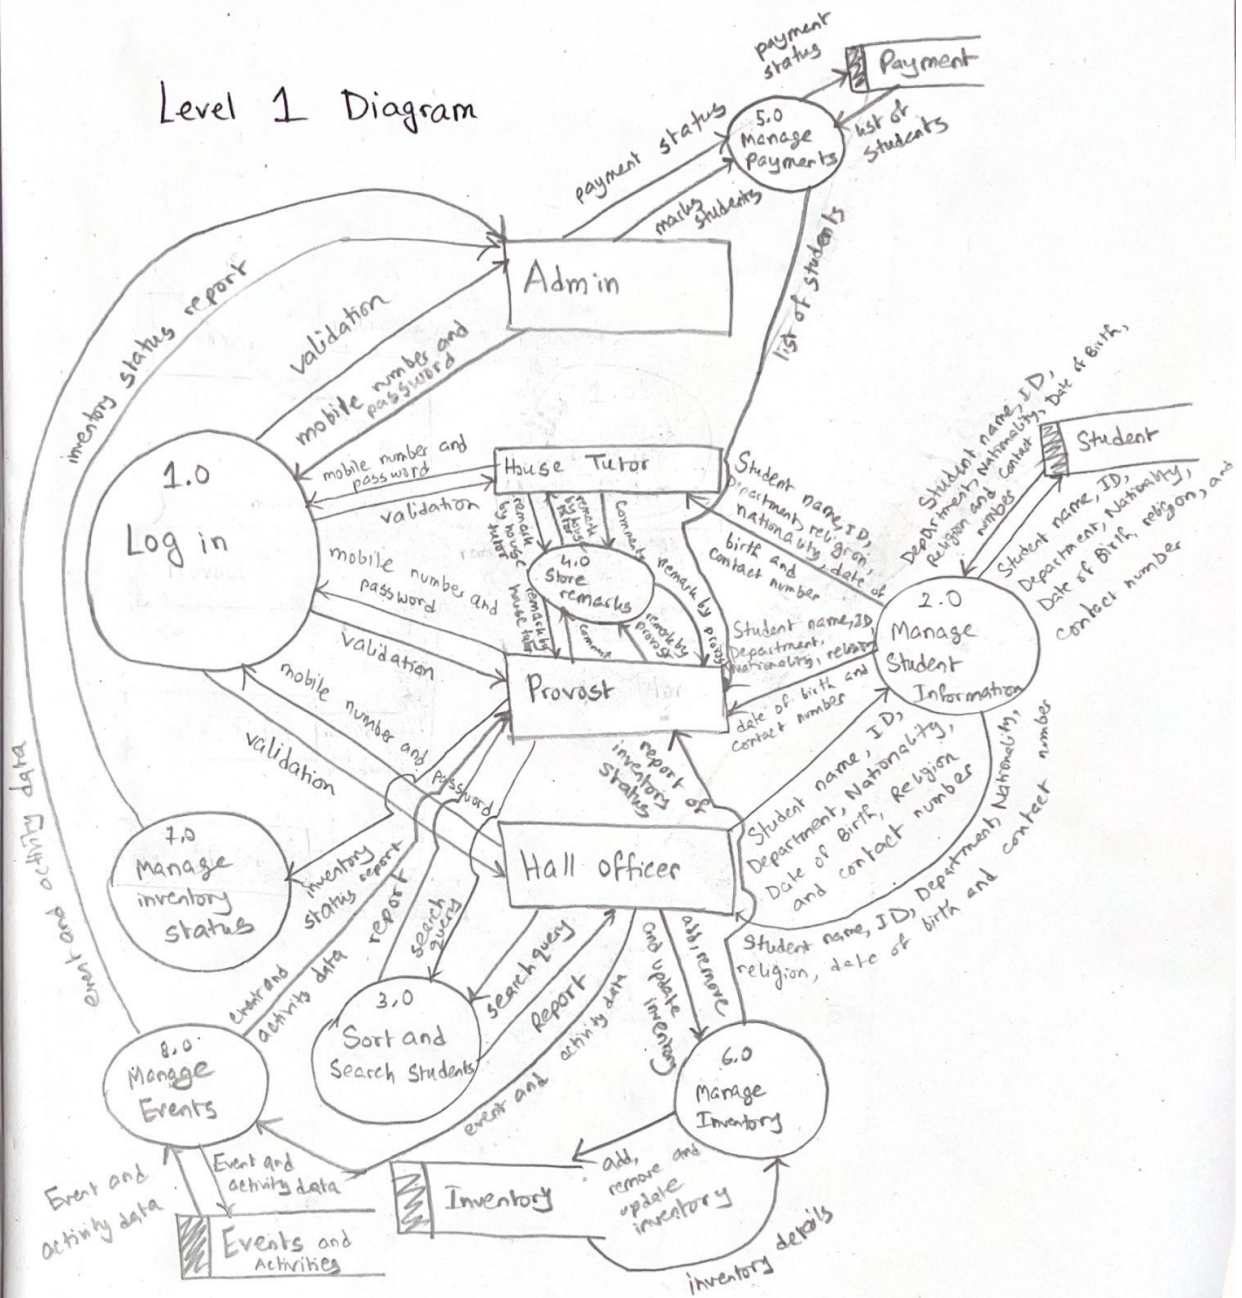 Level 1 Diagram
payment
status
Payment
5.0
Manage
Payments
list of
students
payment status
marks
students
list of students
Admin
inventory status report
validation
mobile number and
password
1.0
Log in
mobile number and
password
validation
House Tutor
remark
by house
tutor
remark
by house
tutor
comment
4.0
Store
remarks
remark by
house tutor
comment
remark by
provost
remark by provost
mobile number and
password
validation
Provost
Student name, ID,
Department, religion,
nationality, date of
birth and
contact number
Student name, ID,
Department, Nationality, Date of Birth,
Religion and contact
number
Student
Student name, ID,
Department, Nationality,
Date of Birth, religion, and
contact number
2.0
Manage
Student
Information
Student name, ID
Department,
Nationality, religion
date of birth and
contact number
mobile number and password
validation
report of
inventory
Status
Hall officer
Student name, ID,
Department, Nationality,
Date of Birth, Religion
and contact number
Student name, ID, Department, Nationality,
religion, date of birth and contact number
7.0
Manage
inventory
status
inventory
status report
event and activity data
event and
activity data
report
search
query
3.0
Sort and
Search Students
search query
Report
event and activity data
add, remove
and update
inventory
6.0
Manage
Inventory
8.0
Manage
Events
Event and
activity data
Event and
activity data
Events and
Activities
Inventory
add,
remove and
update
inventory
inventory details